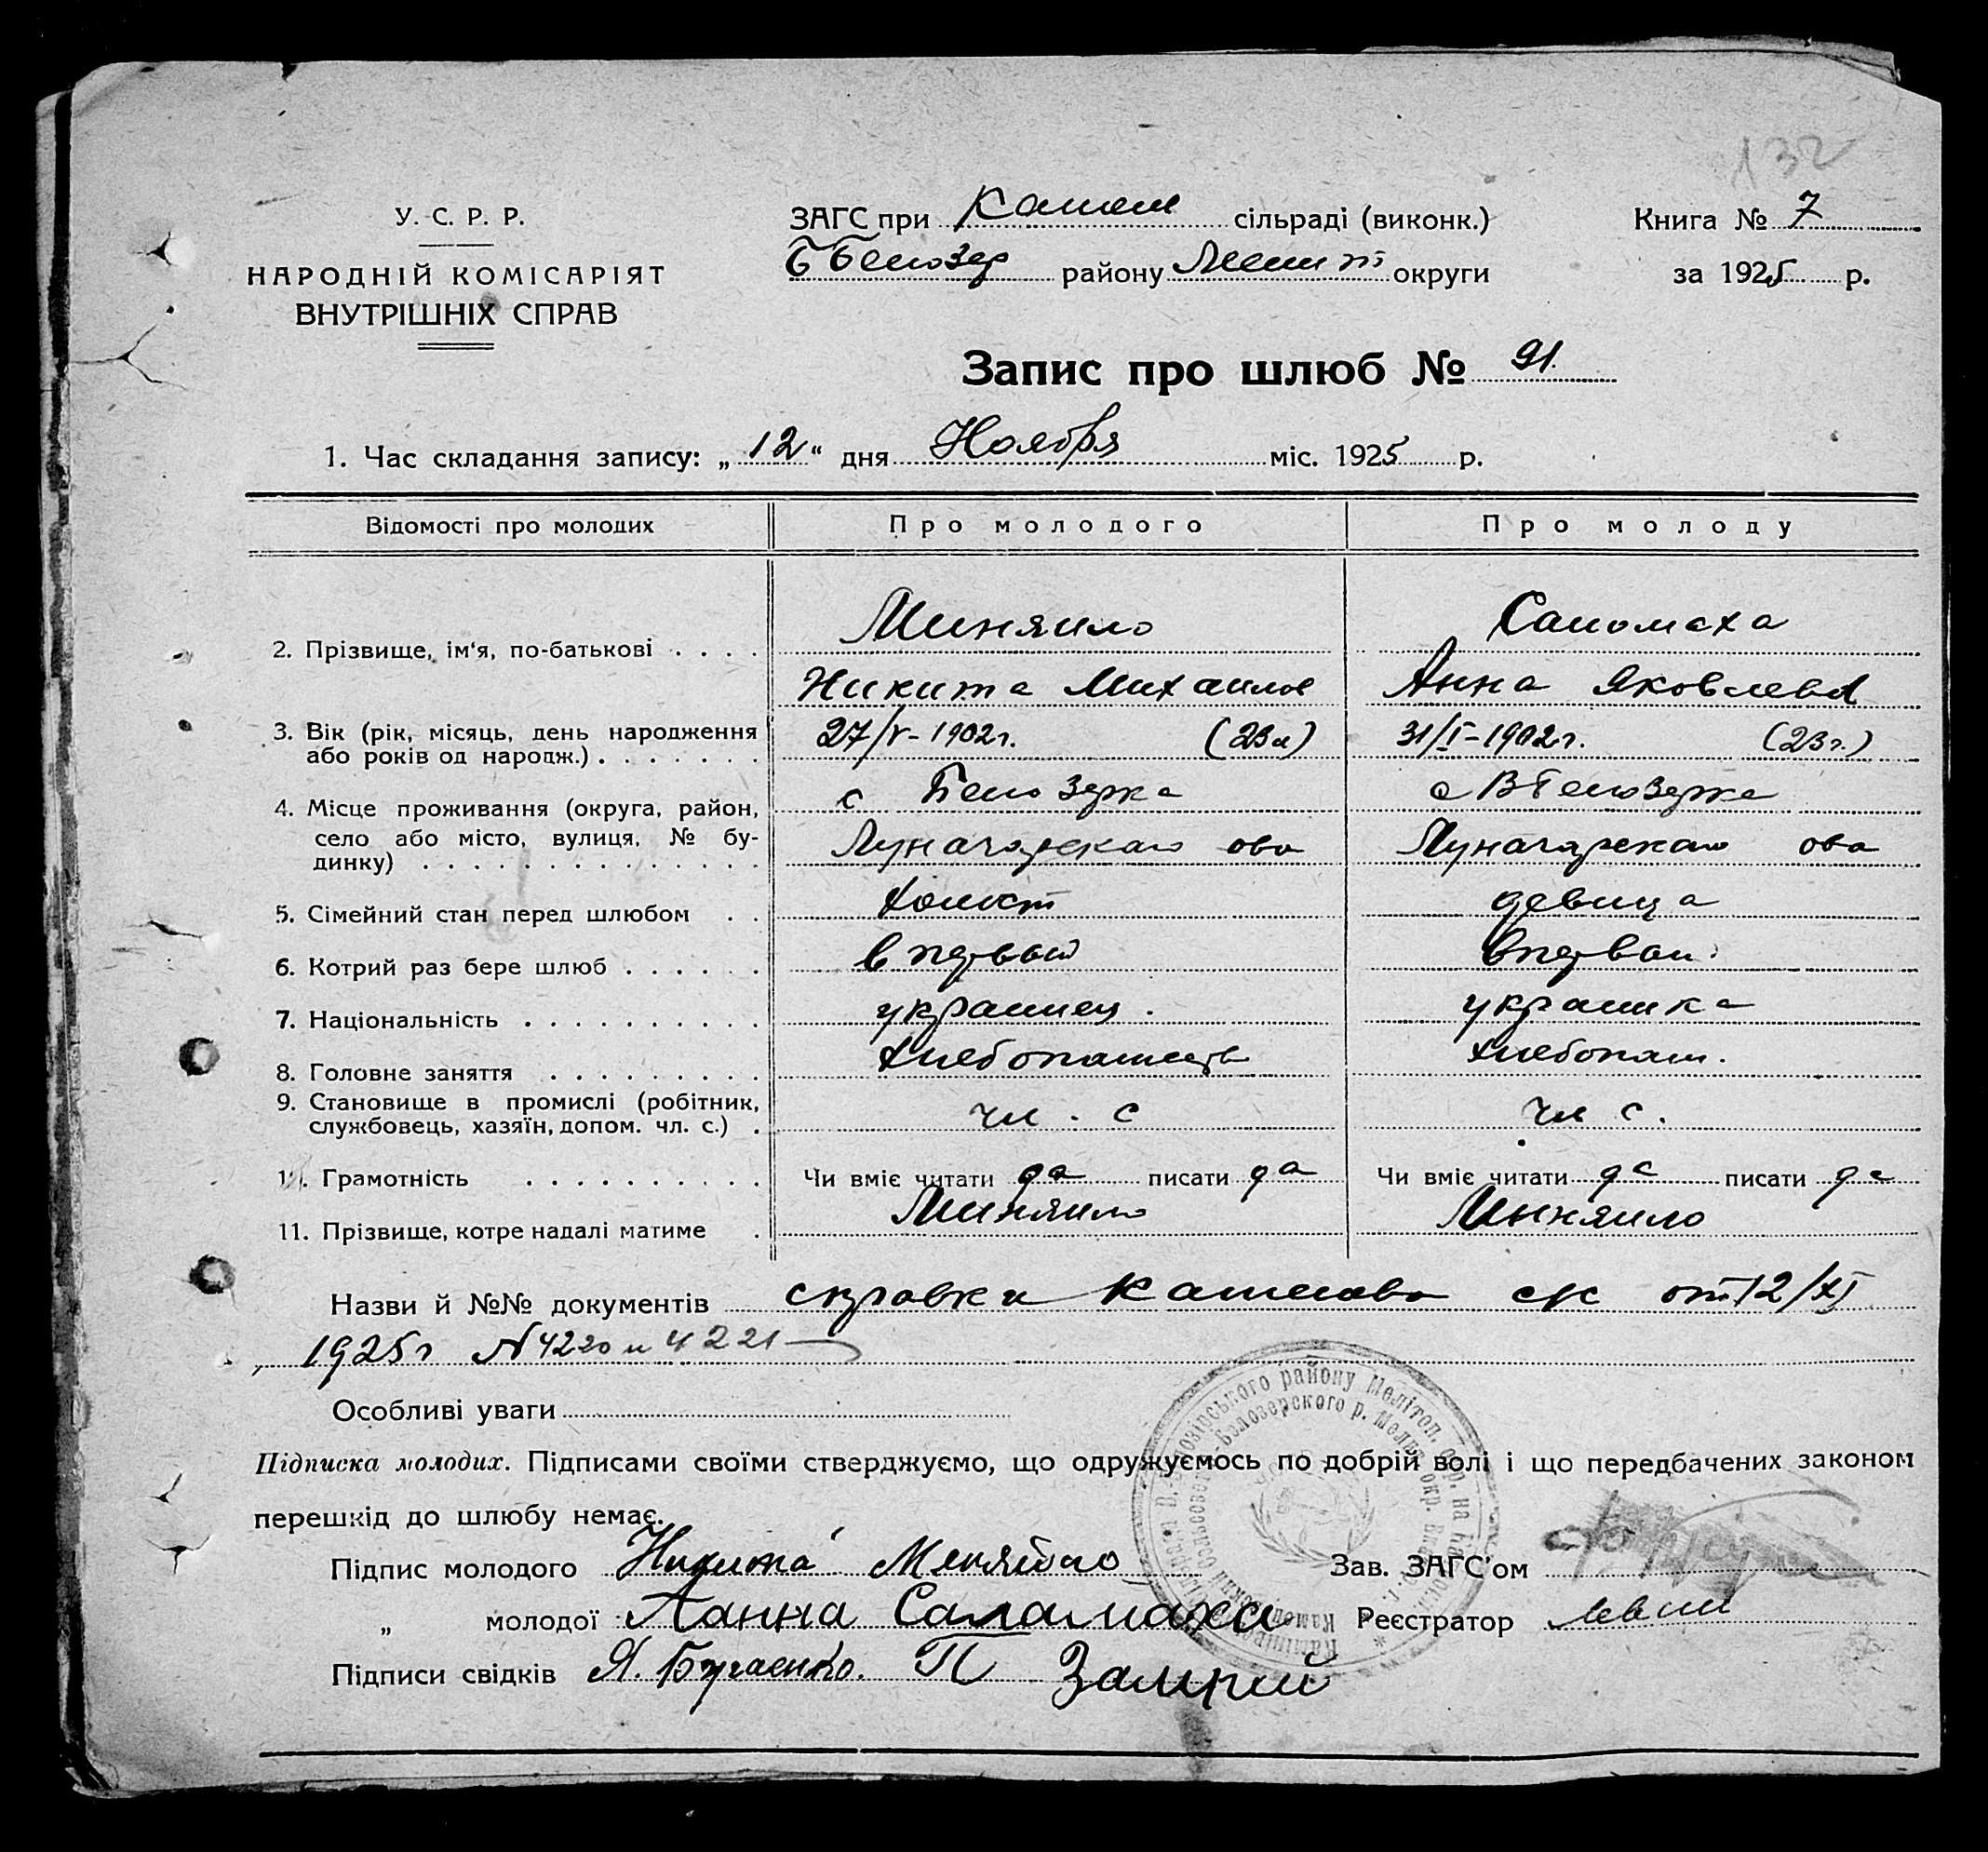 132
У. С. Р. Р.
НАРОДНІЙ КОМІСАРІЯТ
ВНУТРІШНІХ СПРАВ
ЗАГС при Камен сільраді (виконк.)
Б Белозер району Мелит округи
Книга № 7
за 1925 р.
Запис про шлюб № 91.
1. Час складання запису: „12“ дня Ноября міс. 1925 р.
Відомості про молодих Про молодого Про молоду
2. Прізвище, ім'я, по-батькові . . . . Миняило Саломаха
Никита Михаилов Анна Яковлева
3. Вік (рік, місяць, день народження 27/V-1902г. (23 л) 31/I-1902г. (23 г.)
або років од народж.) . . . . . . .
4. Місце проживання (округа, район, с Белозерка с В Белозерка
село або місто, вулиця, № бу- Луначарскаго ова Луначарскаго ова
динку) . . . . . . . . . . . . . .
5. Сімейний стан перед шлюбом . . холост девица
6. Котрий раз бере шлюб . . . . . в первый в первый
7. Національність . . . . . . . . . . украинец. украинка
8. Головне заняття . . . . . . . . . хлебопашец хлебопаш.
9. Становище в промислі (робітник, чл. с чл с.
службовець, хазяїн, допом. чл. с.) .
10. Грамотність . . . . . . . . . . Чи вміє читати да писати да Чи вміє читати да писати да
11. Прізвище, котре надалі матиме . Миняило Миняило
Назви й №№ документів справки Каменсково с/с от 12/XI
1925г N 4220 и 4221
Особливі уваги
Підписка молодих. Підписами своїми стверджуємо, що одружуємось по добрій волі і що передбачених законом
перешкід до шлюбу немає.
Підпис молодого Никита Меняйло Зав. ЗАГС'ом
„ молодої Ганна Саламаха Реєстратор
Підписи свідків Я. Бугаенко. П Замрий